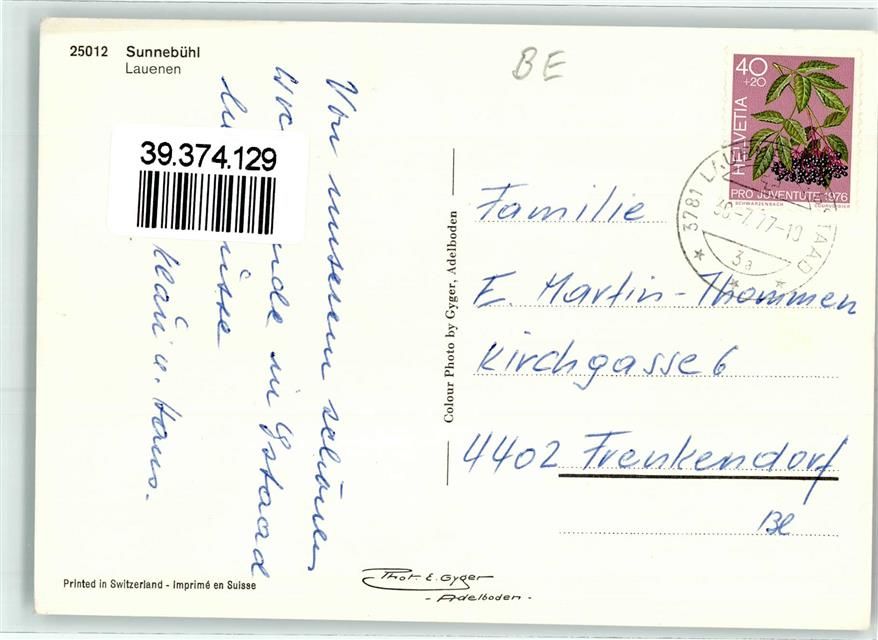 25012 Sunnebühl
Lauenen
BE
40
+20
HELVETIA
PRO JUVENTUTE 1976
SCHWARZENBACH COURVOISIER
3781 LAUENEN
30.-7.77-10
3a
39.374.129
Von unserem schönen
nde in Gstaad
Klari u. Hans.
Colour Photo by Gyger, Adelboden
Familie
E. Martin-Thommen
Kirchgasse 6
4402 Frenkendorf
Bl
Printed in Switzerland - Imprimé en Suisse
Phot. E. Gyger
- Adelboden -